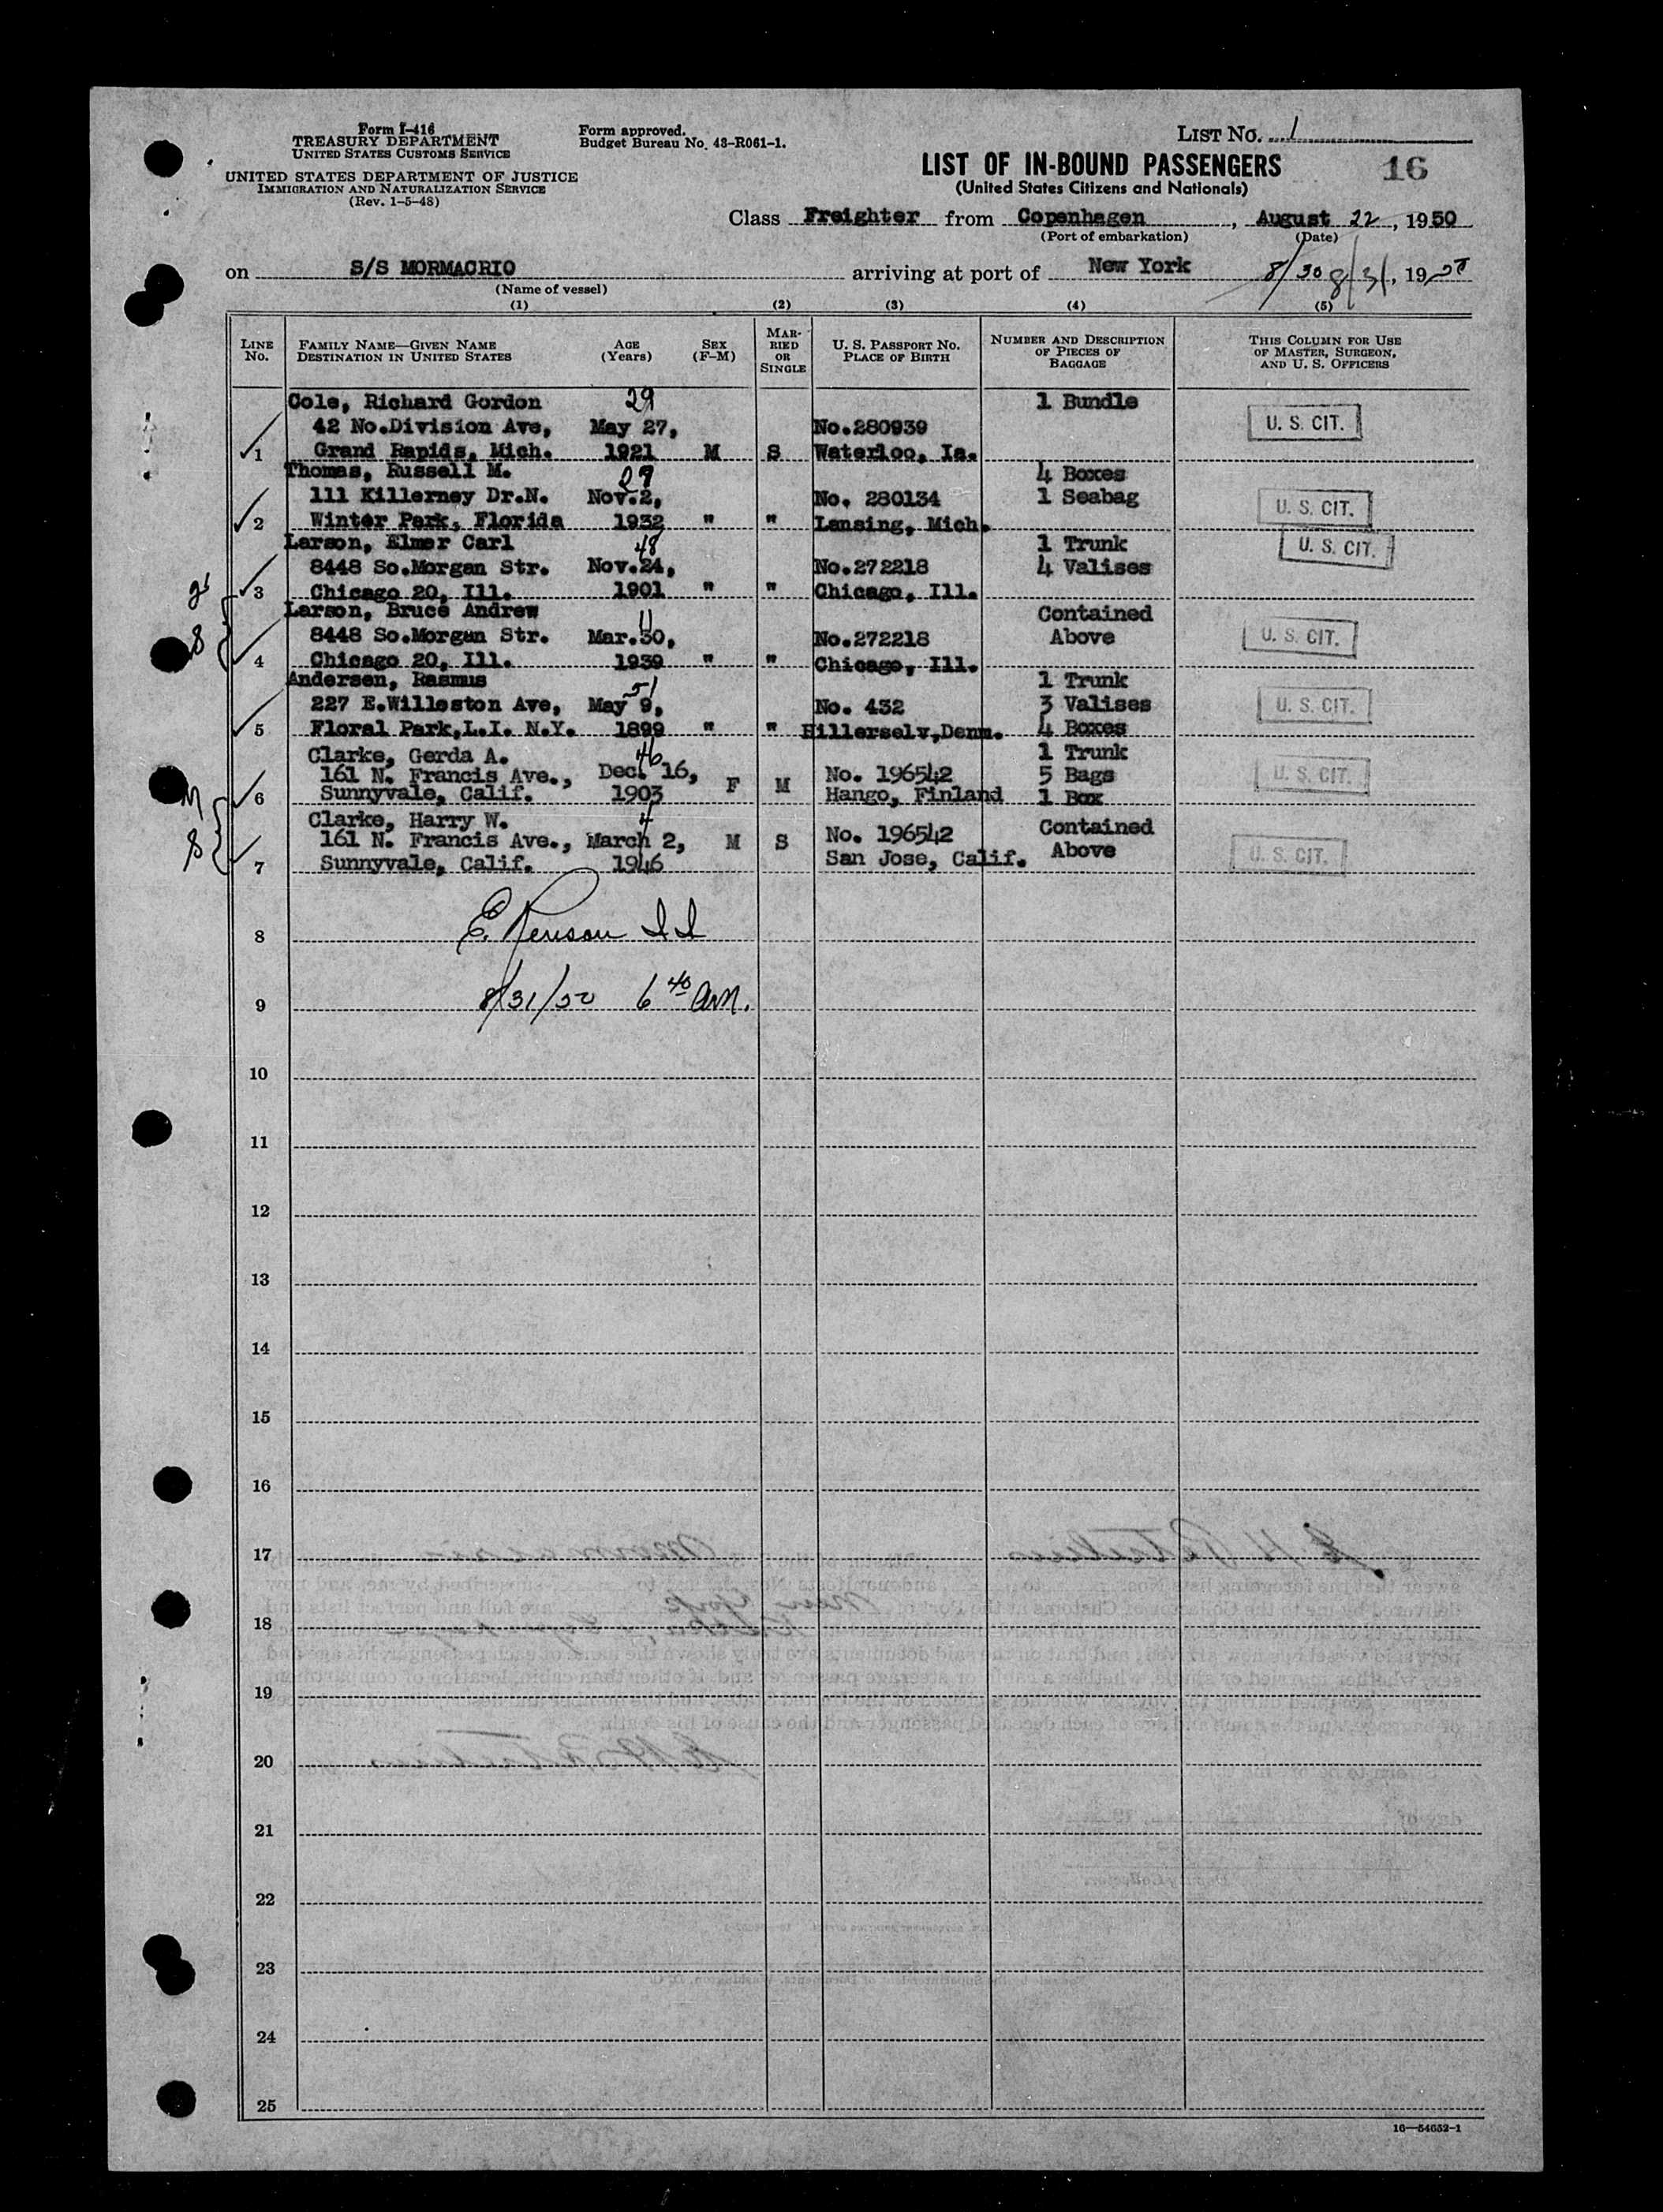 Form I-416
TREASURY DEPARTMENT
UNITED STATES CUSTOMS SERVICE
UNITED STATES DEPARTMENT OF JUSTICE
IMMIGRATION AND NATURALIZATION SERVICE
(Rev. 1-5-48)
Form approved.
Budget Bureau No. 43-R061-1.
LIST NO. 1
LIST OF IN-BOUND PASSENGERS
16
(United States Citizens and Nationals)
Class Freighter from Copenhagen, August 22, 1950
(Port of embarkation) (Date)
on S/S MORMACRIO arriving at port of New York 8/30 8/31, 1950
(Name of vessel)
(1) (2) (3) (4) (5)
LINE No.
FAMILY NAME—GIVEN NAME
DESTINATION IN UNITED STATES
AGE
(Years)
SEX
(F-M)
MAR-
RIED
OR
SINGLE
U. S. PASSPORT NO.
PLACE OF BIRTH
NUMBER AND DESCRIPTION
OF PIECES OF
BAGGAGE
THIS COLUMN FOR USE
OF MASTER, SURGEON,
AND U. S. OFFICERS
Cole, Richard Gordon 29 1 Bundle
42 No.Division Ave, May 27, No.280939 U. S. CIT.
1 Grand Rapids, Mich. 1921 M S Waterloo, Ia.
Thomas, Russell M. 4 Boxes
111 Killerney Dr.N. Nov.2, No. 280134 1 Seabag U. S. CIT.
2 Winter Park, Florida 1932 " " Lansing, Mich.
Larson, Elmer Carl 48 1 Trunk U. S. CIT.
8448 So.Morgan Str. Nov.24, No.272218 4 Valises
3 Chicago 20, Ill. 1901 " " Chicago, Ill.
Larson, Bruce Andrew 11 Contained
8448 So.Morgan Str. Mar.30, No.272218 Above U. S. CIT.
4 Chicago 20, Ill. 1939 " " Chicago, Ill.
Andersen, Rasmus 51 1 Trunk
227 E.Willeston Ave, May 9, No. 432 3 Valises U. S. CIT.
5 Floral Park,L.I. N.Y. 1899 " " Hillerselv,Denm. 4 Boxes
Clarke, Gerda A. 46 1 Trunk
161 N. Francis Ave., Dec. 16, F M No. 196542 5 Bags U. S. CIT.
6 Sunnyvale, Calif. 1903 Hango, Finland 1 Box
Clarke, Harry W. 4 Contained
161 N. Francis Ave., March 2, M S No. 196542 Above U. S. CIT.
7 Sunnyvale, Calif. 1946 San Jose, Calif.
8
8/31/50 6 40 am.
9
10
11
12
13
14
15
16
17
18
19
20
21
22
23
24
25
16—54652-1